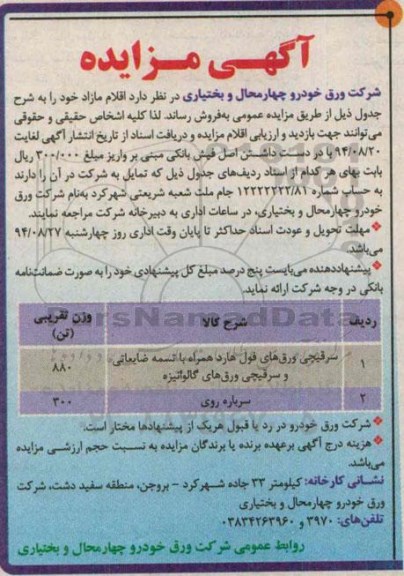 آگهی مزایده
شرکت ورق خودرو چهارمحال و بختیاری در نظر دارد اقلام مازاد خود را به شرح
جدول ذیل از طریق مزایده عمومی به‌فروش رساند. لذا کلیه اشخاص حقیقی و حقوقی
می‌توانند جهت بازدید و ارزیابی اقلام مزایده و دریافت اسناد از تاریخ انتشار آگهی لغایت
۹۴/۰۸/۲۰ با در دست داشتن اصل فیش بانکی مبنی بر واریز مبلغ ۳۰۰/۰۰۰ ریال
بابت بهای هر کدام از اسناد ردیف‌های جدول ذیل که تمایل به شرکت در آن را دارند
به حساب شماره ۱۲۲۲۲۲۲۲/۸۱ جام ملت شعبه شریعتی شهرکرد به‌نام شرکت ورق
خودرو چهارمحال و بختیاری، در ساعات اداری به دبیرخانه شرکت مراجعه نمایند.
مهلت تحویل و عودت اسناد حداکثر تا پایان وقت اداری روز چهارشنبه ۹۴/۰۸/۲۷
می‌باشد.
پیشنهاددهنده می‌بایست پنج درصد مبلغ کل پیشنهادی خود را به صورت ضمانتنامه
بانکی در وجه شرکت ارائه نماید.
ردیف شرح کالا وزن تقریبی (تن)
۱ سرقیچی ورق‌های فول هارد همراه با تسمه ضایعاتی
و سرقیچی ورق‌های گالوانیزه ۸۸۰
۲ سرباره روی ۳۰۰
شرکت ورق خودرو در رد یا قبول هریک از پیشنهادها مختار است.
هزینه درج آگهی برعهده برنده یا برندگان مزایده به نسبت حجم ارزشی مزایده
می‌باشد.
نشانی کارخانه: کیلومتر ۳۳ جاده شهرکرد - بروجن، منطقه سفید دشت، شرکت
ورق خودرو چهارمحال و بختیاری
تلفن‌های: ۳۹۷۰ و ۰۳۸۳۴۲۶۳۹۶۰
روابط عمومی شرکت ورق خودرو چهارمحال و بختیاری
ParsNamadData